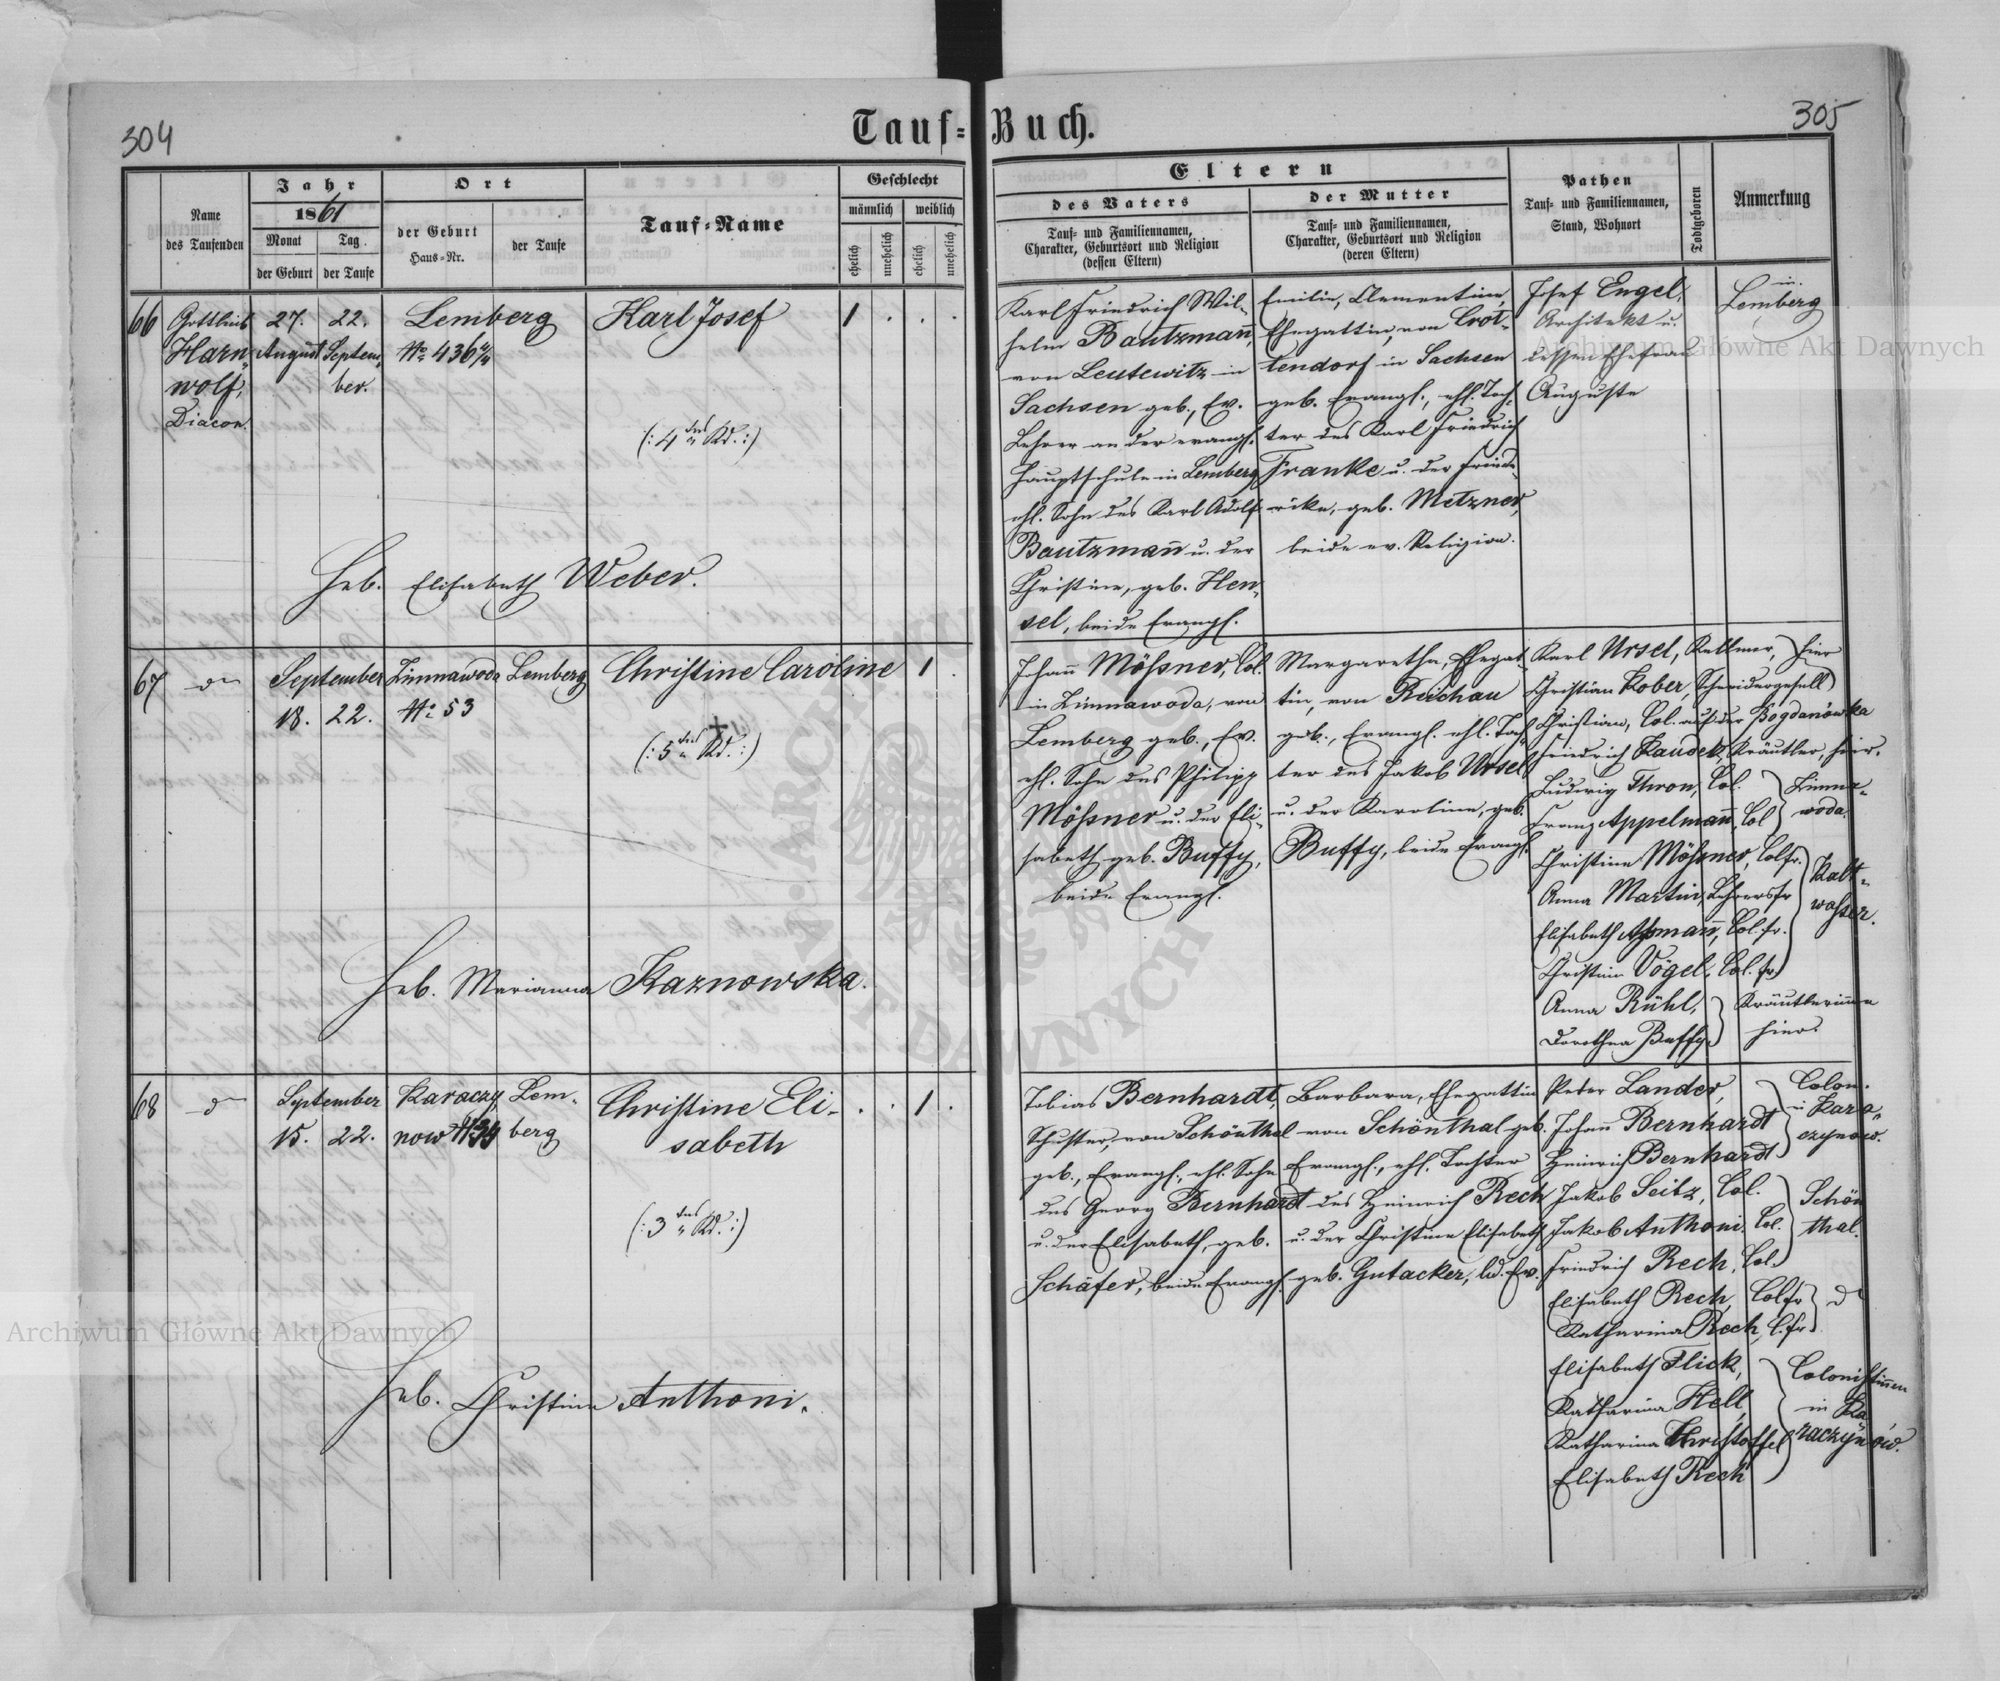 304
Tauf-Buch.
305
Jahr
Ort
Geschlecht
Name
des Taufenden
1861
Monat
Tag
der Geburt
der Taufe
der Geburt
Haus-Nr.
der Taufe
Tauf-Name
männlich
weiblich
ehelich
unehelich
ehelich
unehelich
Eltern
des Vaters
der Mutter
Tauf- und Familiennamen,
Charakter, Geburtsort und Religion
(dessen Eltern)
Tauf- und Familiennamen,
Charakter, Geburtsort und Religion
(deren Eltern)
Pathen
Tauf- und Familiennamen,
Stand, Wohnort
Todtgeboren
Anmerkung
66
Gottlieb
Harn-
wolf,
Diacon.
27.
August
22.
Septem-
ber.
Lemberg
No 436 4/4
Karl Josef
(: 4tes Kd. :)
1 . . .
Heb. Elisabeth Weber.
Karl Friedrich Wil-
helm Bautzmann,
von Leutewitz in
Sachsen geb., Ev.
Lehrer an der evangl.
Hauptschule in Lemberg
ehl. Sohn des Karl Adolf
Bautzmann u. der
Christine, geb. Hen-
sel, beide Evangl.
Emilie, Clementine,
Ehegattin, von Crot-
tendorf in Sachsen
geb. Evangl., ehl. Toch-
ter des Karl Friedrich
Franke u. der Friede-
rike, geb. Metzner,
beide ev. Religion.
Josef Engel,
Architekt u.
dessen Ehefrau
Auguste
in
Lemberg
67
September
18. 22.
Zimnawoda
No 53
Lemberg
Christine Caroline
(: 5tes Kd. :)
1 .
Heb. Marianna Kaznowska.
Johann Mößner, Col.
in Zimnawoda, von
Lemberg geb., Ev.
ehl. Sohn des Philipp
Mößner u. der Eli-
sabeth geb. Buffy,
beide Evangl.
Margaretha, Ehegat-
tin, von Reichau
geb., Evangl. ehl. Toch-
ter des Jakob Ursel
u. der Karoline, geb.
Buffy, beide Evangl.
Karl Ursel, Kellner, hier
Christian Kober, Schneidergesell
Christian, Col. auf der Bogdanówka
Friedrich Kaudek, Kräutler, hier.
Ludwig Thron, Col.
Franz Appelmann, Col
Zimna-
woda.
Christine Mößner, Colfr.
Anna Martin, Lehrersfr
Elisabeth Aßmann, Col. fr.
Christine Vögel, Col. fr
Kalt-
wasser.
Anna Rühl,
Dorothea Buffy
Kräutlerinnen
hier.
68
September
15. 22.
Karaczy-
now
Lem-
berg
Christine Eli-
sabeth
(: 3tes Kd. :)
. . 1 .
Heb. Christine Anthoni.
Tobias Bernhardt,
Schuster, von Schönthal
geb., Evangl., ehl. Sohn
des Georg Bernhardt
u. der Elisabeth, geb.
Schäfer, beide Evangl.
Barbara, Ehegattin
von Schönthal geb.
Evangl., ehl. Tochter
des Heinrich Rech
u. der Christine Elisabeth
geb. Gutacker, bd. Ev.
Peter Lander,
Johann Bernhardt
Heinrich Bernhardt
Colon.
in Kara-
czynow.
Jakob Seitz, Col.
Jakob Anthoni, Col.
Friedrich Rech, Col.
Schön
thal.
Elisabeth Rech, Colfr
Katharina Rech, C. fr.
Elisabeth Flick,
Katharina Hell,
Katharina Christoffel
Elisabeth Rech
Colonistinnen
in Ka-
raczynow.
Archiwum Główne Akt Dawnych
Archiwum Główne Akt Dawnych